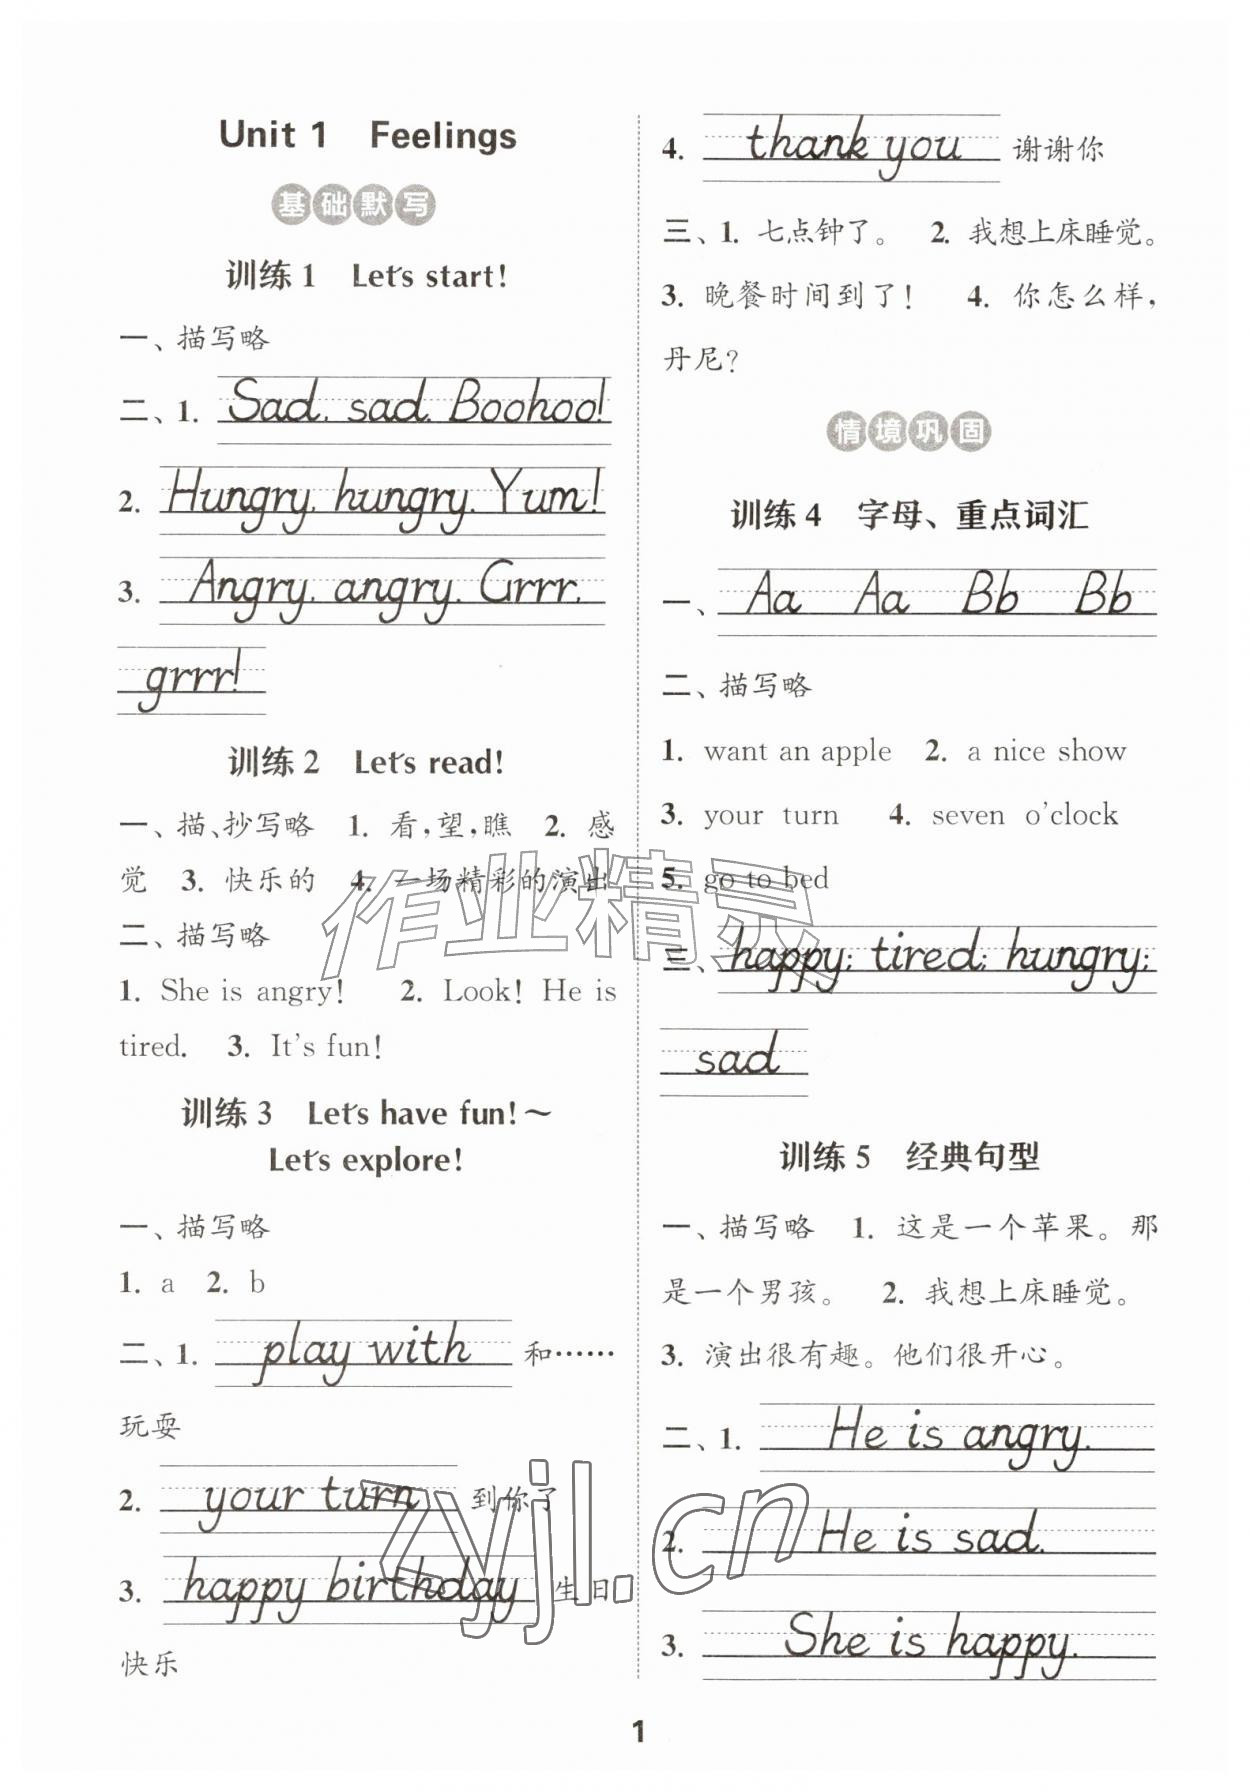 Unit 1 Feelings
基础默写
训练1 Let's start!
一、描写略
二、1. Sad, sad. Boohoo!
2. Hungry, hungry. Yum!
3. Angry, angry. Grrr,
grrr!
训练2 Let's read!
一、描、抄写略 1. 看,望,瞧 2. 感
觉 3. 快乐的 4. 一场精彩的演出
二、描写略
1. She is angry! 2. Look! He is
tired. 3. It's fun!
训练3 Let's have fun!~
Let's explore!
一、描写略
1. a 2. b
二、1. play with 和……
玩耍
2. your turn 到你了
3. happy birthday 生日
快乐
4. thank you 谢谢你
三、1. 七点钟了。 2. 我想上床睡觉。
3. 晚餐时间到了! 4. 你怎么样,
丹尼?
情境巩固
训练4 字母、重点词汇
一、Aa Aa Bb Bb
二、描写略
1. want an apple 2. a nice show
3. your turn 4. seven o'clock
5. go to bed
三、happy; tired; hungry;
sad
训练5 经典句型
一、描写略 1. 这是一个苹果。那
是一个男孩。 2. 我想上床睡觉。
3. 演出很有趣。他们很开心。
二、1. He is angry.
2. He is sad.
3. She is happy.
作业精灵
zyjl.cn
1